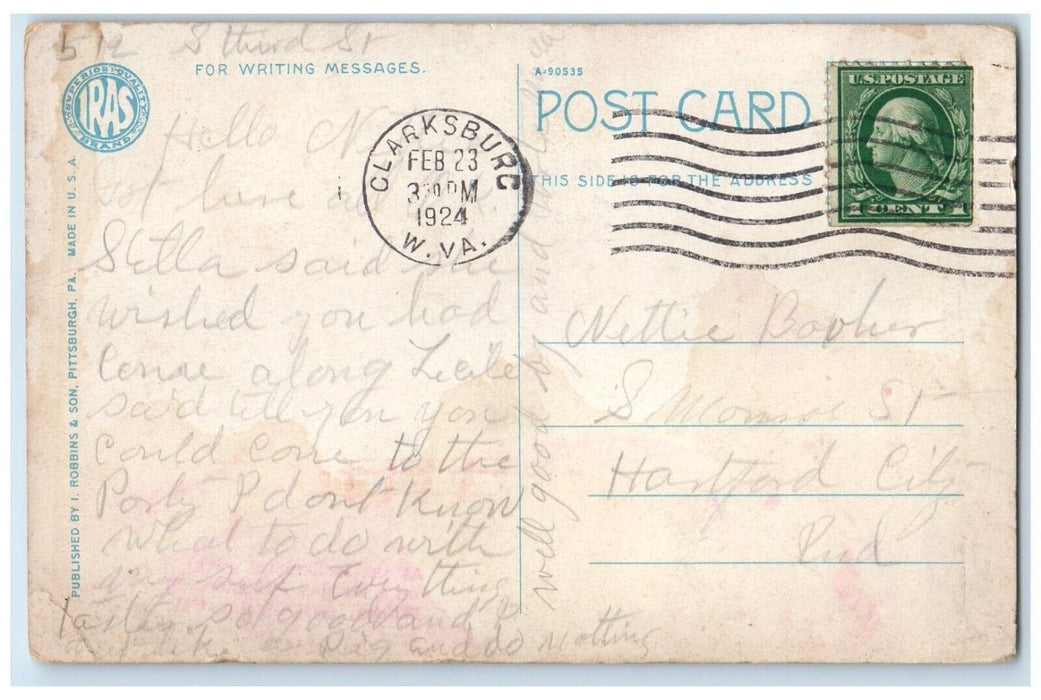 512 S third St
FOR WRITING MESSAGES.
SUPERIOR QUALITY
IRAS
BRAND
Hello
got here
Stella said she
wished you had
Come along Lucile
said tell you you
Could Come to the
Party I dont Know
What to do with
my self Everything
tastes so good and I
like a Pig and do nothing
well good by and
CLARKSBURG
FEB 23
3 30 PM
1924
W. VA.
A-90535
POST CARD
THIS SIDE IS FOR THE ADDRESS
U.S. POSTAGE
1 CENT 1
Nettie Booher
S Monroe St
Hartford City
Ind
PUBLISHED BY I. ROBBINS & SON, PITTSBURGH, PA. MADE IN U. S. A.